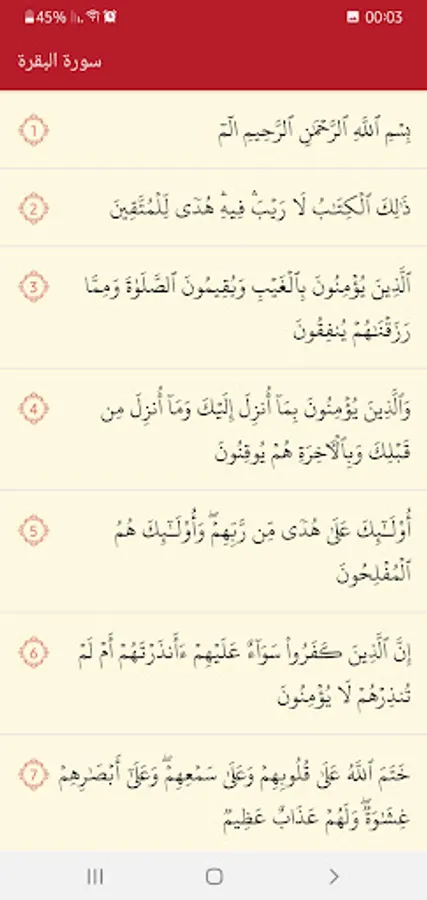 45% 00:03
سورة البقرة
بِسۡمِ ٱللَّهِ ٱلرَّحۡمَٰنِ ٱلرَّحِيمِ الٓمٓ 1
ذَٰلِكَ ٱلۡكِتَٰبُ لَا رَيۡبَۛ فِيهِۛ هُدٗى لِّلۡمُتَّقِينَ 2
ٱلَّذِينَ يُؤۡمِنُونَ بِٱلۡغَيۡبِ وَيُقِيمُونَ ٱلصَّلَوٰةَ وَمِمَّا 3
رَزَقۡنَٰهُمۡ يُنفِقُونَ
وَٱلَّذِينَ يُؤۡمِنُونَ بِمَآ أُنزِلَ إِلَيۡكَ وَمَآ أُنزِلَ مِن 4
قَبۡلِكَ وَبِٱلۡأٓخِرَةِ هُمۡ يُوقِنُونَ
أُوْلَٰٓئِكَ عَلَىٰ هُدٗى مِّن رَّبِّهِمۡۖ وَأُوْلَٰٓئِكَ هُمُ 5
ٱلۡمُفۡلِحُونَ
إِنَّ ٱلَّذِينَ كَفَرُواْ سَوَآءٌ عَلَيۡهِمۡ ءَأَنذَرۡتَهُمۡ أَمۡ لَمۡ 6
تُنذِرۡهُمۡ لَا يُؤۡمِنُونَ
خَتَمَ ٱللَّهُ عَلَىٰ قُلُوبِهِمۡ وَعَلَىٰ سَمۡعِهِمۡۖ وَعَلَىٰٓ أَبۡصَٰرِهِمۡ 7
غِشَٰوَةٞۖ وَلَهُمۡ عَذَابٌ عَظِيمٞ